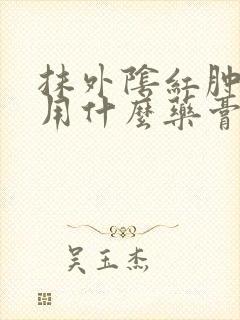 抹外陰紅肿
用什麽藥膏
吴玉杰